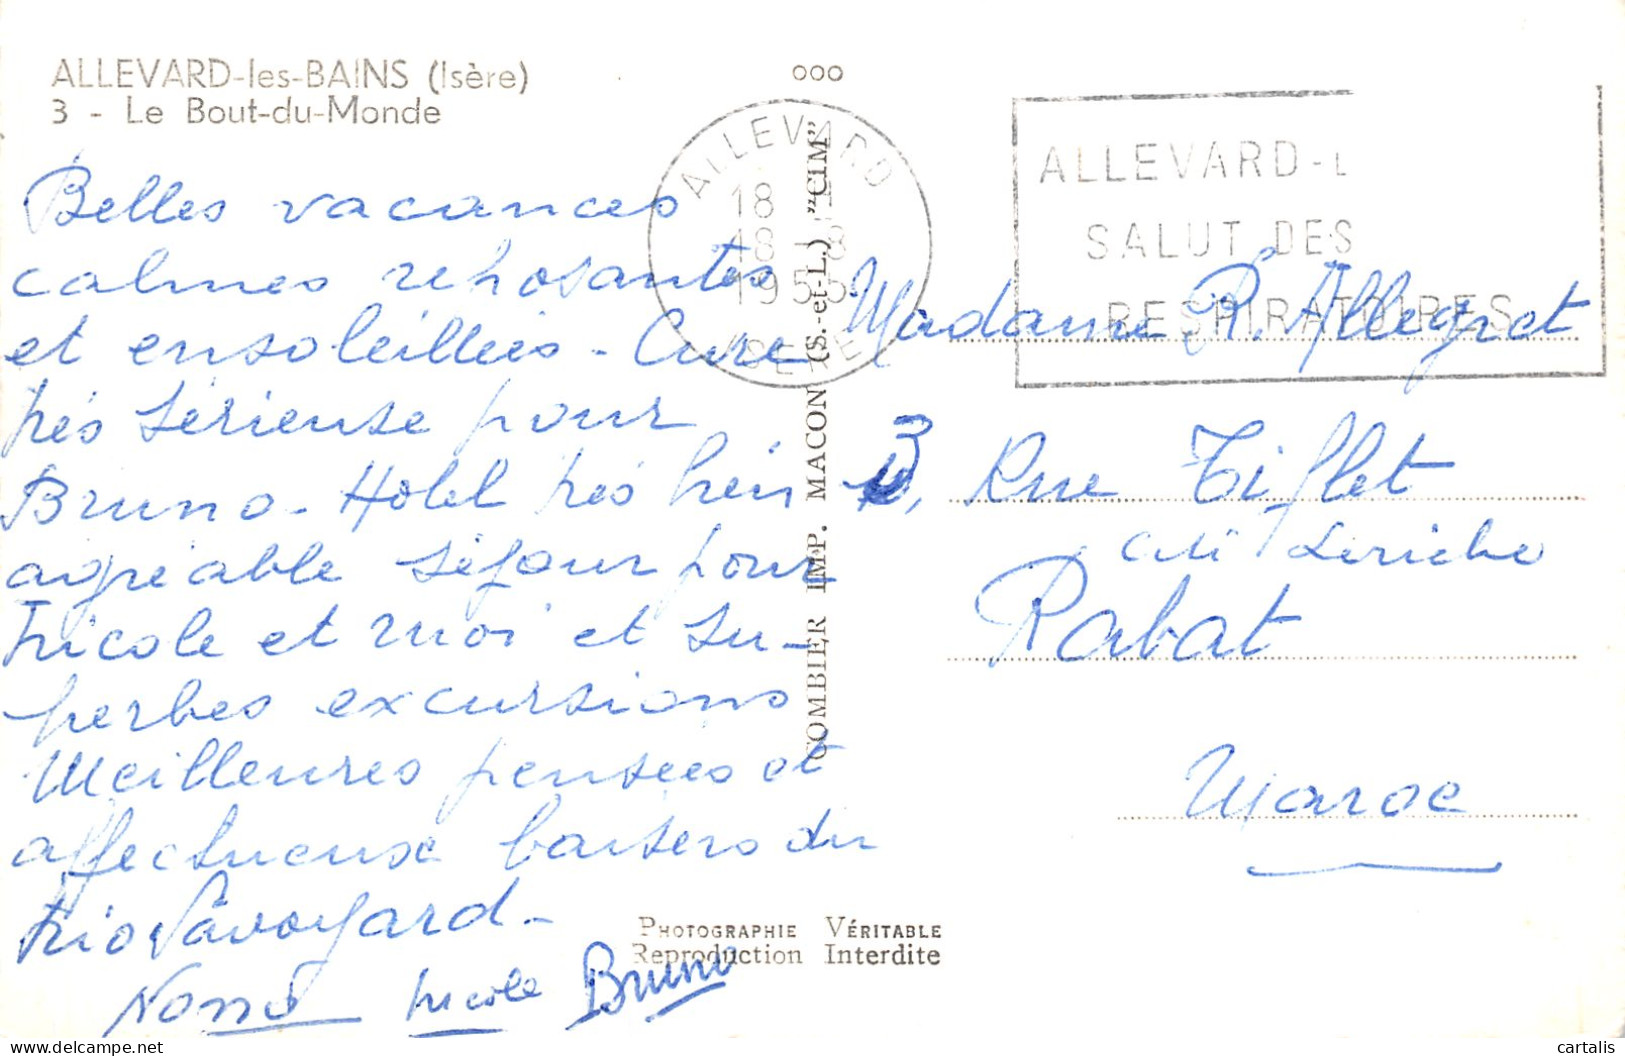 ALLEVARD-les-BAINS (Isère)
3 - Le Bout-du-Monde
Belles vacances
calmes reposantes
et ensoleillées - Cure
très sérieuse pour
Bruno - Hotel très bien
agréable séjour pour
Nicole et moi et su-
perbes excursions
Meilleures pensées et
affectueux baisers du
trio Savoyard -
Nono Nicole Bruno
COMBIER IMP. MACON (S.-et-L.) "CIM"
ALLEVARD
18
18 - 8
1955
ISERE
ALLEVARD-L
SALUT DES
RESPIRATOIRES
Madame R. Allegret
3, Rue Tiflet
cité Leriche
Rabat
Maroc
PHOTOGRAPHIE VÉRITABLE
Reproduction Interdite
cartalis